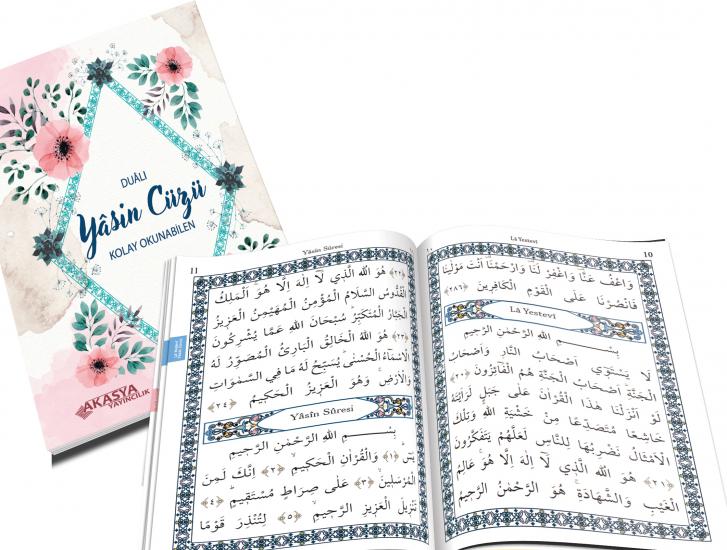 DUÂLI
Yâsin Cüzü
KOLAY OKUNABİLEN
AKASYA
YAYINCILIK
Lâ Yestevî
10
وَاعْفُ عَنَّا وَاغْفِرْ لَنَا وَارْحَمْنَا اَنْتَ مَوْلٰينَا
فَانْصُرْنَا عَلَى الْقَوْمِ الْكَافِرِينَ ﴿٢٨٦﴾
Lâ Yestevî
بِسْــــــمِ اللهِ الرَّحْمٰنِ الرَّحِيمِ
لَا يَسْتَوِٓي اَصْحَابُ النَّارِ وَاَصْحَابُ
الْجَنَّةِ اَصْحَابُ الْجَنَّةِ هُمُ الْفَٓائِزُونَ ﴿٢٠﴾
لَوْ اَنْزَلْنَا هٰذَا الْقُرْاٰنَ عَلٰى جَبَلٍ لَرَاَيْتَهُ
خَاشِعًا مُتَصَدِّعًا مِنْ خَشْيَةِ اللهِ وَتِلْكَ
الْاَمْثَالُ نَضْرِبُهَا لِلنَّاسِ لَعَلَّهُمْ يَتَفَكَّرُونَ
﴿٢١﴾ هُوَ اللهُ الَّذِي لَٓا اِلٰهَ اِلَّا هُوَ عَالِمُ
الْغَيْبِ وَالشَّهَادَةِ هُوَ الرَّحْمٰنُ الرَّحِيمُ
11
Yâsîn Sûresi
﴿٢٢﴾ هُوَ اللهُ الَّذِي لَٓا اِلٰهَ اِلَّا هُوَ اَلْمَلِكُ
الْقُدُّوسُ السَّلَامُ الْمُؤْمِنُ الْمُهَيْمِنُ الْعَزِيزُ
الْجَبَّارُ الْمُتَكَبِّرُ سُبْحَانَ اللهِ عَمَّا يُشْرِكُونَ
﴿٢٣﴾ هُوَ اللهُ الْخَالِقُ الْبَارِئُ الْمُصَوِّرُ لَهُ
الْاَسْمَٓاءُ الْحُسْنٰى يُسَبِّحُ لَهُ مَا فِي السَّمٰوَاتِ
وَالْاَرْضِ وَهُوَ الْعَزِيزُ الْحَكِيمُ ﴿٢٤﴾
Yâsîn Sûresi
بِسْــــــمِ اللهِ الرَّحْمٰنِ الرَّحِيمِ
يٰسٓ ﴿١﴾ وَالْقُرْاٰنِ الْحَكِيمِ ﴿٢﴾ اِنَّكَ لَمِنَ
الْمُرْسَلِينَ ﴿٣﴾ عَلٰى صِرَاطٍ مُسْتَقِيمٍ ﴿٤﴾
تَنْزِيلَ الْعَزِيزِ الرَّحِيمِ ﴿٥﴾ لِتُنْذِرَ قَوْمًا